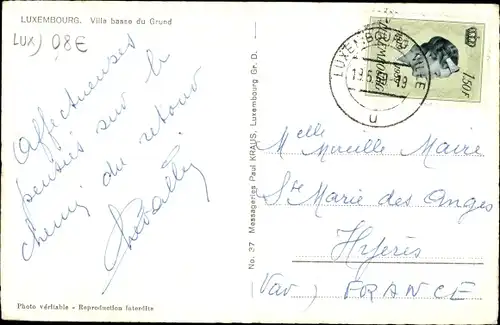 LUXEMBOURG. Ville basse du Grund
LUX) 08€
Affectueuses
pensées sur le
chemin du retour
Chevallier
Photo véritable - Reproduction interdite
No. 37 Messageries Paul KRAUS, Luxembourg Gr. D.
LUXEMBOURG-VILLE
19
u
LUXEMBOURG
1,50F
Melle Mireille Maire
Ste Marie des Anges
Hyères
(Var) FRANCE